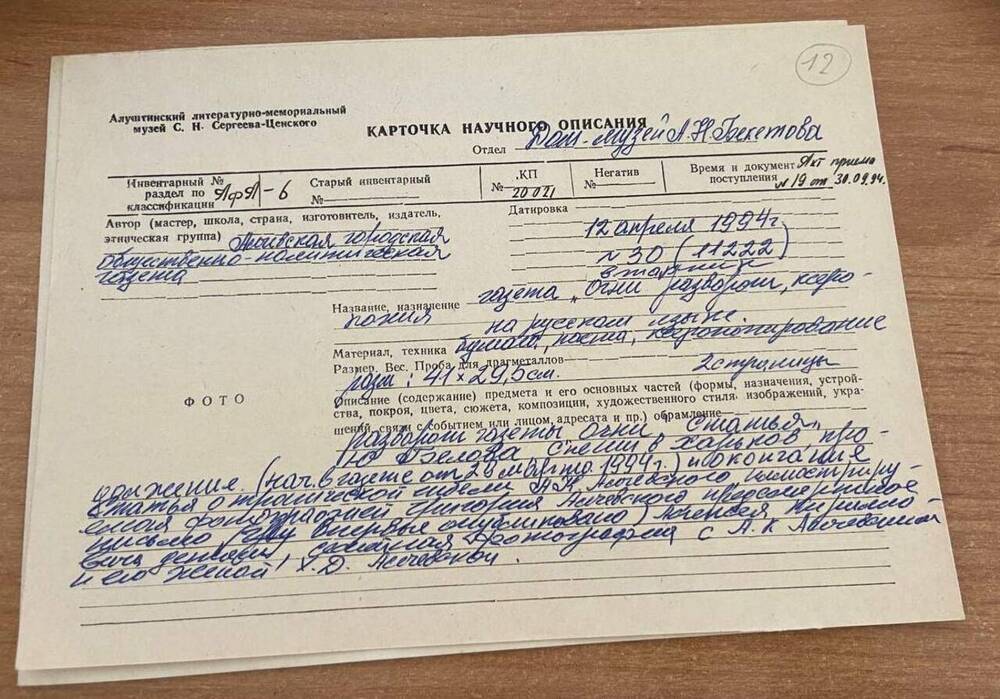 12
Алуштинский литературно-мемориальный
музей С. Н. Сергеева-Ценского
КАРТОЧКА НАУЧНОГО ОПИСАНИЯ
Отдел Дом-музей А.Н. Бекетова
Инвентарный №
раздел по
классификации АфЛ-6
Старый инвентарный
№
КП
№ 20021
Негатив
№
Время и документ Акт приема
поступления №19 от 30.09.94.
Автор (мастер, школа, страна, изготовитель, издатель,
этническая группа) городская
общественно-политическая
газета
Датировка
12 апреля 1994г
№ 30 (11222)
вторник
Название, назначение газета „Огни разворот, ксеро-
копия на русском языке.
Материал, техника бумага, паста, ксерокопирование
Размер. Вес. Проба для драгметаллов 2 страницы
разм: 41×29,5 см.
ФОТО
Описание (содержание) предмета и его основных частей (формы, назначения, устрой-
ства, покроя, цвета, сюжета, композиции, художественного стиля, изображений, укра-
шений, связи с событием или лицом, адресата и пр.) обрамление
разворот газеты Огни статья
Ю Белова Спеши в Харьков про-
должение. (нач. в газете от 26 марта 1994г.) и окончания
статьи о трагической гибели А.К Алчевского
фотографией Григория Алчевского предсмертное
письмо впервые опубликовано) Алексея Кирилло-
вича семейная фотография с А.К Алчевским
и его женой Х.Д. Алчевской.